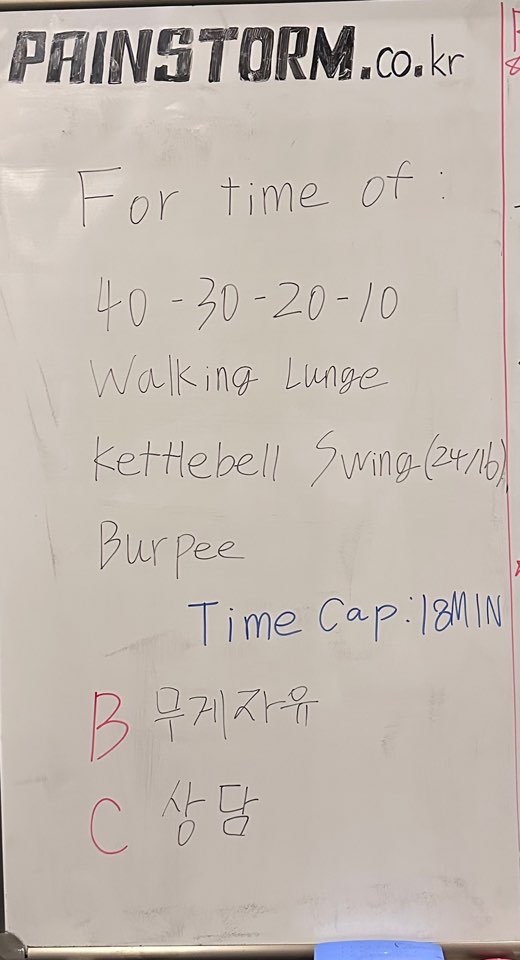 PAINSTORM.co.kr
For time of :
40-30-20-10
Walking Lunge
Kettlebell Swing(24/16)
Burpee
Time Cap:18MIN
B 무게자유
C 상담